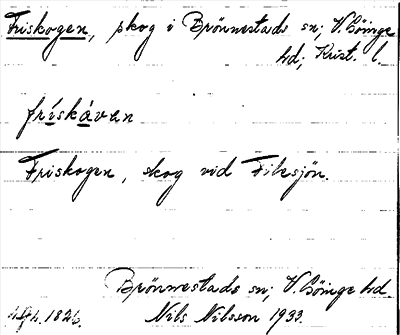 Friskogen, skog i Brönnestads sn; V. Göinge
hd; Krist. l.
frískávan
Friskogen, skog vid Filesjön.
Brönnestads sn; V. Göinge hd
1826. Nils Nilsson 1933.